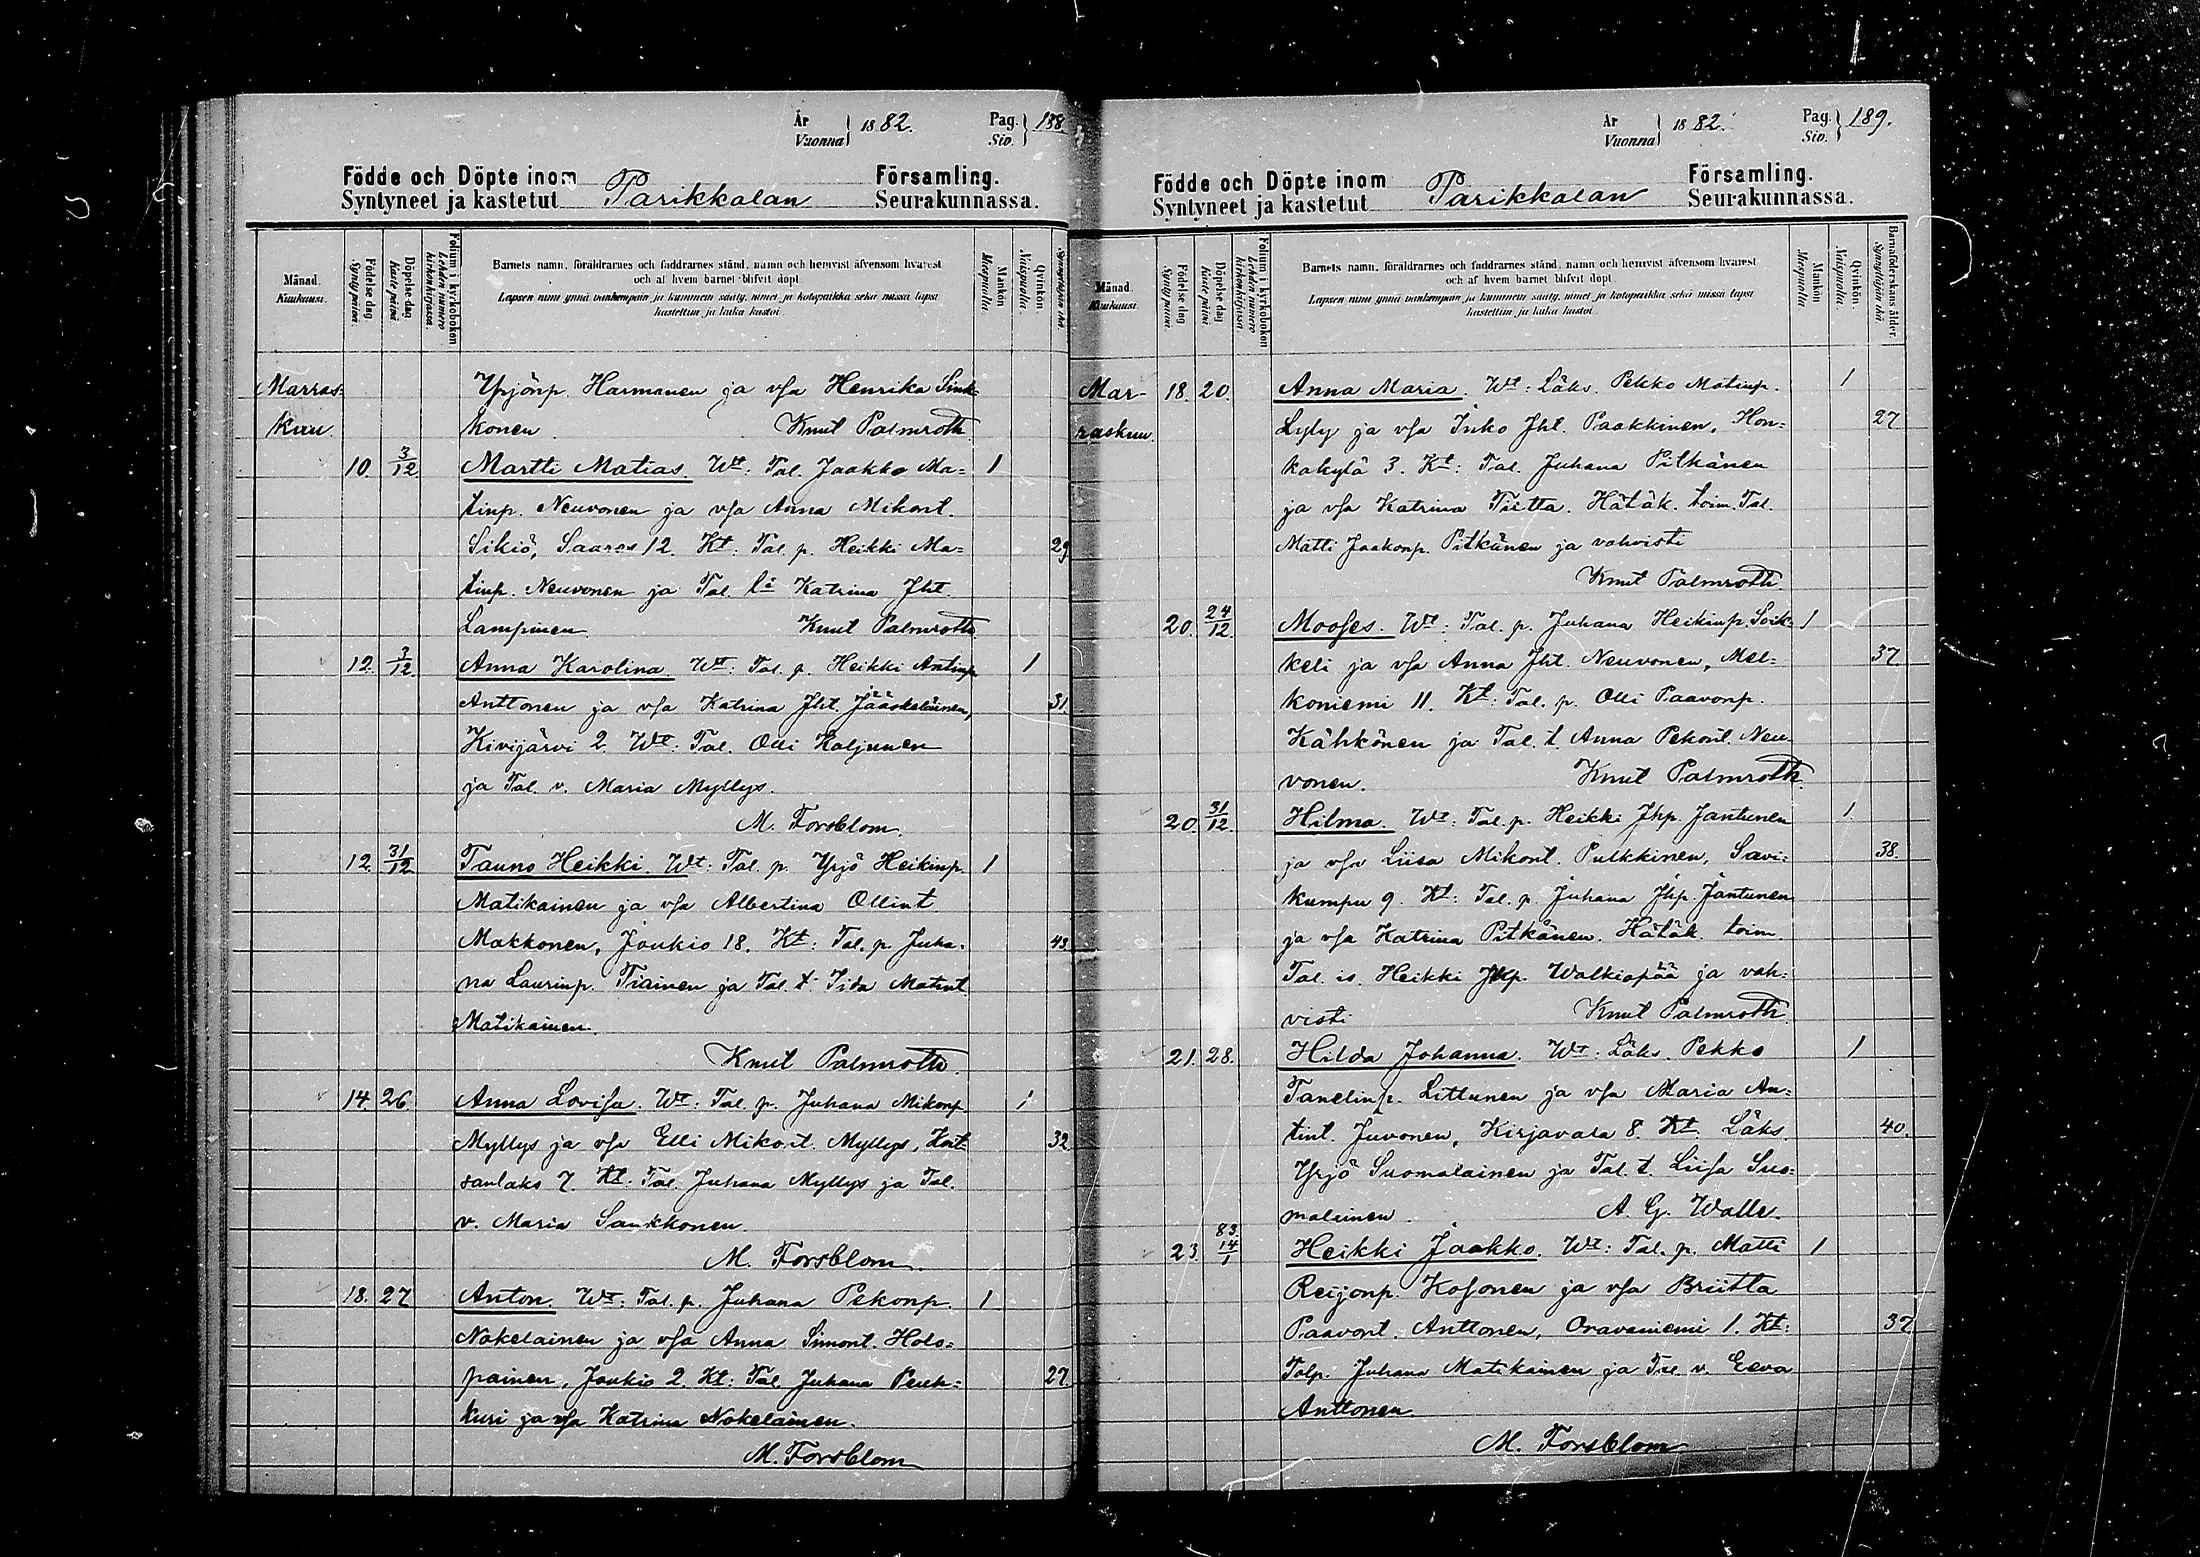 År
Vuonna } 1882. Pag.
Siv. } 188
Födde och Döpte inom
Syntyneet ja kastetut Parikkalan Församling.
Seurakunnassa.
Månad.
Kuukausi.
Födelse dag
Synty päivä.
Döpelse dag
Kaste päivä.
Folium i kyrkoboken
Lehden numero
kirkonkirjassa.
Barnets namn, föräldrarnes och faddrarnes stånd, namn och hemvist äfvensom hvarest
och af hvem barnet blifvit döpt.
Lapsen nimi ynnä vanhempain ja kummein sääty, nimet ja kotopaikka sekä missä lapsi
kastettiin ja kuka kastoi.
Mankön
Miespuolia.
Qvinkön.
Naispuolia.
Synnyttäjän ikä.
Marras- Yrjönp. Harmanen ja vsa Henrika Sink-
kuu. konen. Knut Palmroth.
10. 3/12. Martti Matias. Wt: Tal. Jaakko Ma- 1
tinp. Neuvonen ja vsa Anna Mikont.
Sikiö, Saares 12. Kt: Tal. p. Heikki Ma- 29
tinp. Neuvonen ja Tal. Katrina Jht.
Lampinen. Knut Palmroth
12. 3/12. Anna Karolina. Wt: Tal. p. Heikki Antinp. 1
Anttonen ja vsa Katrina Jht. Jääskeläinen, 31.
Kivijärvi 2. Wt: Tal. Olli Kaljunen
ja Tal. v. Maria Myllys.
M. Forsblom.
12. 31/12 Tauno Heikki. Wt: Tal. p. Yrjö Heikinp. 1
Matikainen ja vsa Albertina Ollint.
Makkonen, Joukio 18. Kt: Tal. p. Juha- 43.
na Laurinp. Tiainen ja Tal. t. Iida Matint.
Matikainen.
Knut Palmroth.
14. 26. Anna Lovisa. Wt: Tal. p. Juhana Mikonp. 1
Myllys ja vsa Elli Mikont. Myllys, Koit- 32
sanlaks 7. Kt: Tal. Juhana Myllys ja Tal.
v. Maria Saukkonen.
M. Forsblom.
18. 27 Anton. Wt: Tal. p. Juhana Pekonp. 1
Nokelainen ja vsa Anna Simont. Holo-
painen, Joukio 2. Kt: Tal. Juhana Peuh- 27.
kuri ja vsa Katrina Nokelainen.
M. Forsblom
År
Vuonna } 1882. Pag.
Siv. } 189.
Födde och Döpte inom
Syntyneet ja kastetut Parikkalan Församling.
Seurakunnassa.
Månad.
Kuukausi.
Födelse dag
Synty päivä.
Döpelse dag
Kaste päivä.
Folium i kyrkoboken
Lehden numero
kirkonkirjassa.
Barnets namn, föräldrarnes och faddrarnes stånd, namn och hemvist äfvensom hvarest
och af hvem barnet blifvit döpt.
Lapsen nimi ynnä vanhempain ja kummein sääty, nimet ja kotopaikka sekä missä lapsi
kastettiin ja kuka kastoi.
Mankön
Miespuolia.
Qvinkön.
Naispuolia.
Barnaföderskans ålder.
Synnyttäjän ikä.
Mar- 18. 20. Anna Maria. Wt: Läks. Pekko Matinp. 1
raskuu. Lyly ja vsa Inko Jht. Paakkinen, Hon- 27
kakylä 3. Kt: Tal. Juhana Pitkänen
ja vsa Katrina Tietta. Hätäk. toim. Tal.
Matti Jaakonp. Pitkänen ja vahvisti
Knut Palmroth.
20. 24/12. Mooses. Wt: Tal. p. Juhana Heikinp. Soik- 1
keli ja vsa Anna Jht. Neuvonen, Mel- 37.
koniemi 11. Kt: Tal. p. Olli Paavonp.
Kähkönen ja Tal. t. Anna Pekont. Neu-
vonen. Knut Palmroth.
20. 31/12. Hilma. Wt: Tal. p. Heikki Jhp. Jantunen 1
ja vsa Liisa Mikont. Pulkkinen, Savi- 38.
kumpu 9. Kt: Tal. p. Juhana Jhp. Jantunen
ja vsa Katrina Pitkänen. Hätäk. toim.
Tal. is. Heikki Jhp. Walkiapää ja vah-
visti Knut Palmroth.
21. 28. Hilda Johanna. Wt: Läks. Pekko 1
Tanelinp. Littunen ja vsa Maria An-
tint. Juvonen, Kirjavala 8. Kt. Läks. 40.
Yrjö Suomalainen ja Tal. t. Liisa Suo-
malainen. A. G. Walle.
23. 83. 14/1 Heikki Jaakko. Wt: Tal. p. Matti 1
Reijonp. Kosonen ja vsa Briitta
Paavont. Anttonen, Oravaniemi 1. Kt: 37
Talp. Juhana Matikainen ja Tal. v. Eeva
Anttonen.
M. Forsblom